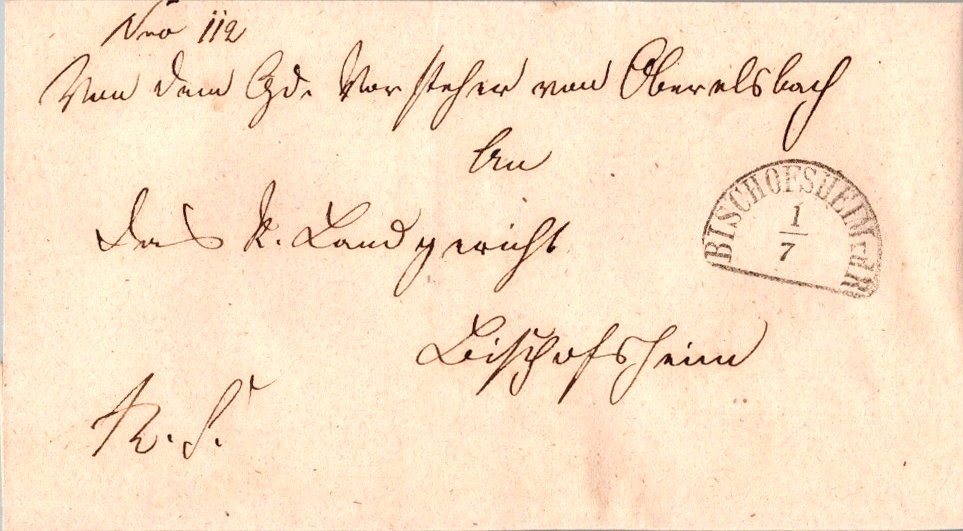 Nro 112
Von dem Gd. Vorsteher von Oberelsbach
An
das K. Landgericht
Bischofsheim
R. S.
BISCHOFSHEIM v.d.R
1
7